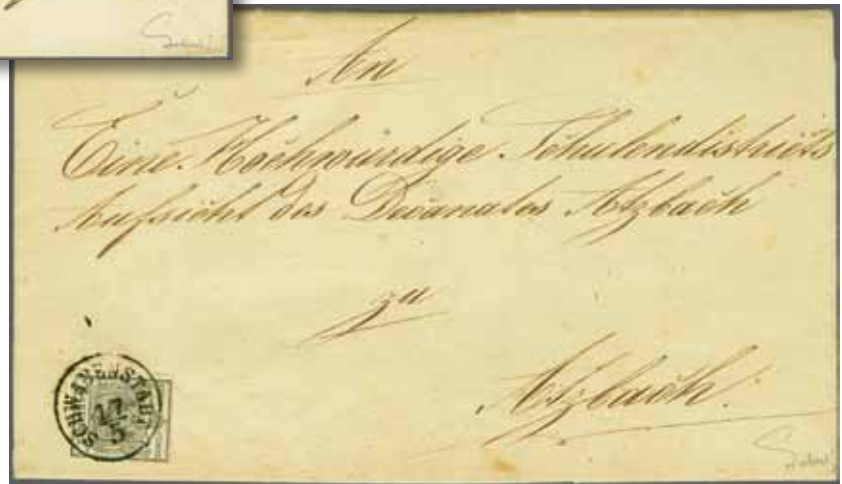 An
Eine Hochwürdige Schulendistricts
Aufsicht des Decanates Atzbach
zu
Atzbach.
SCHWANENSTADT
17
5